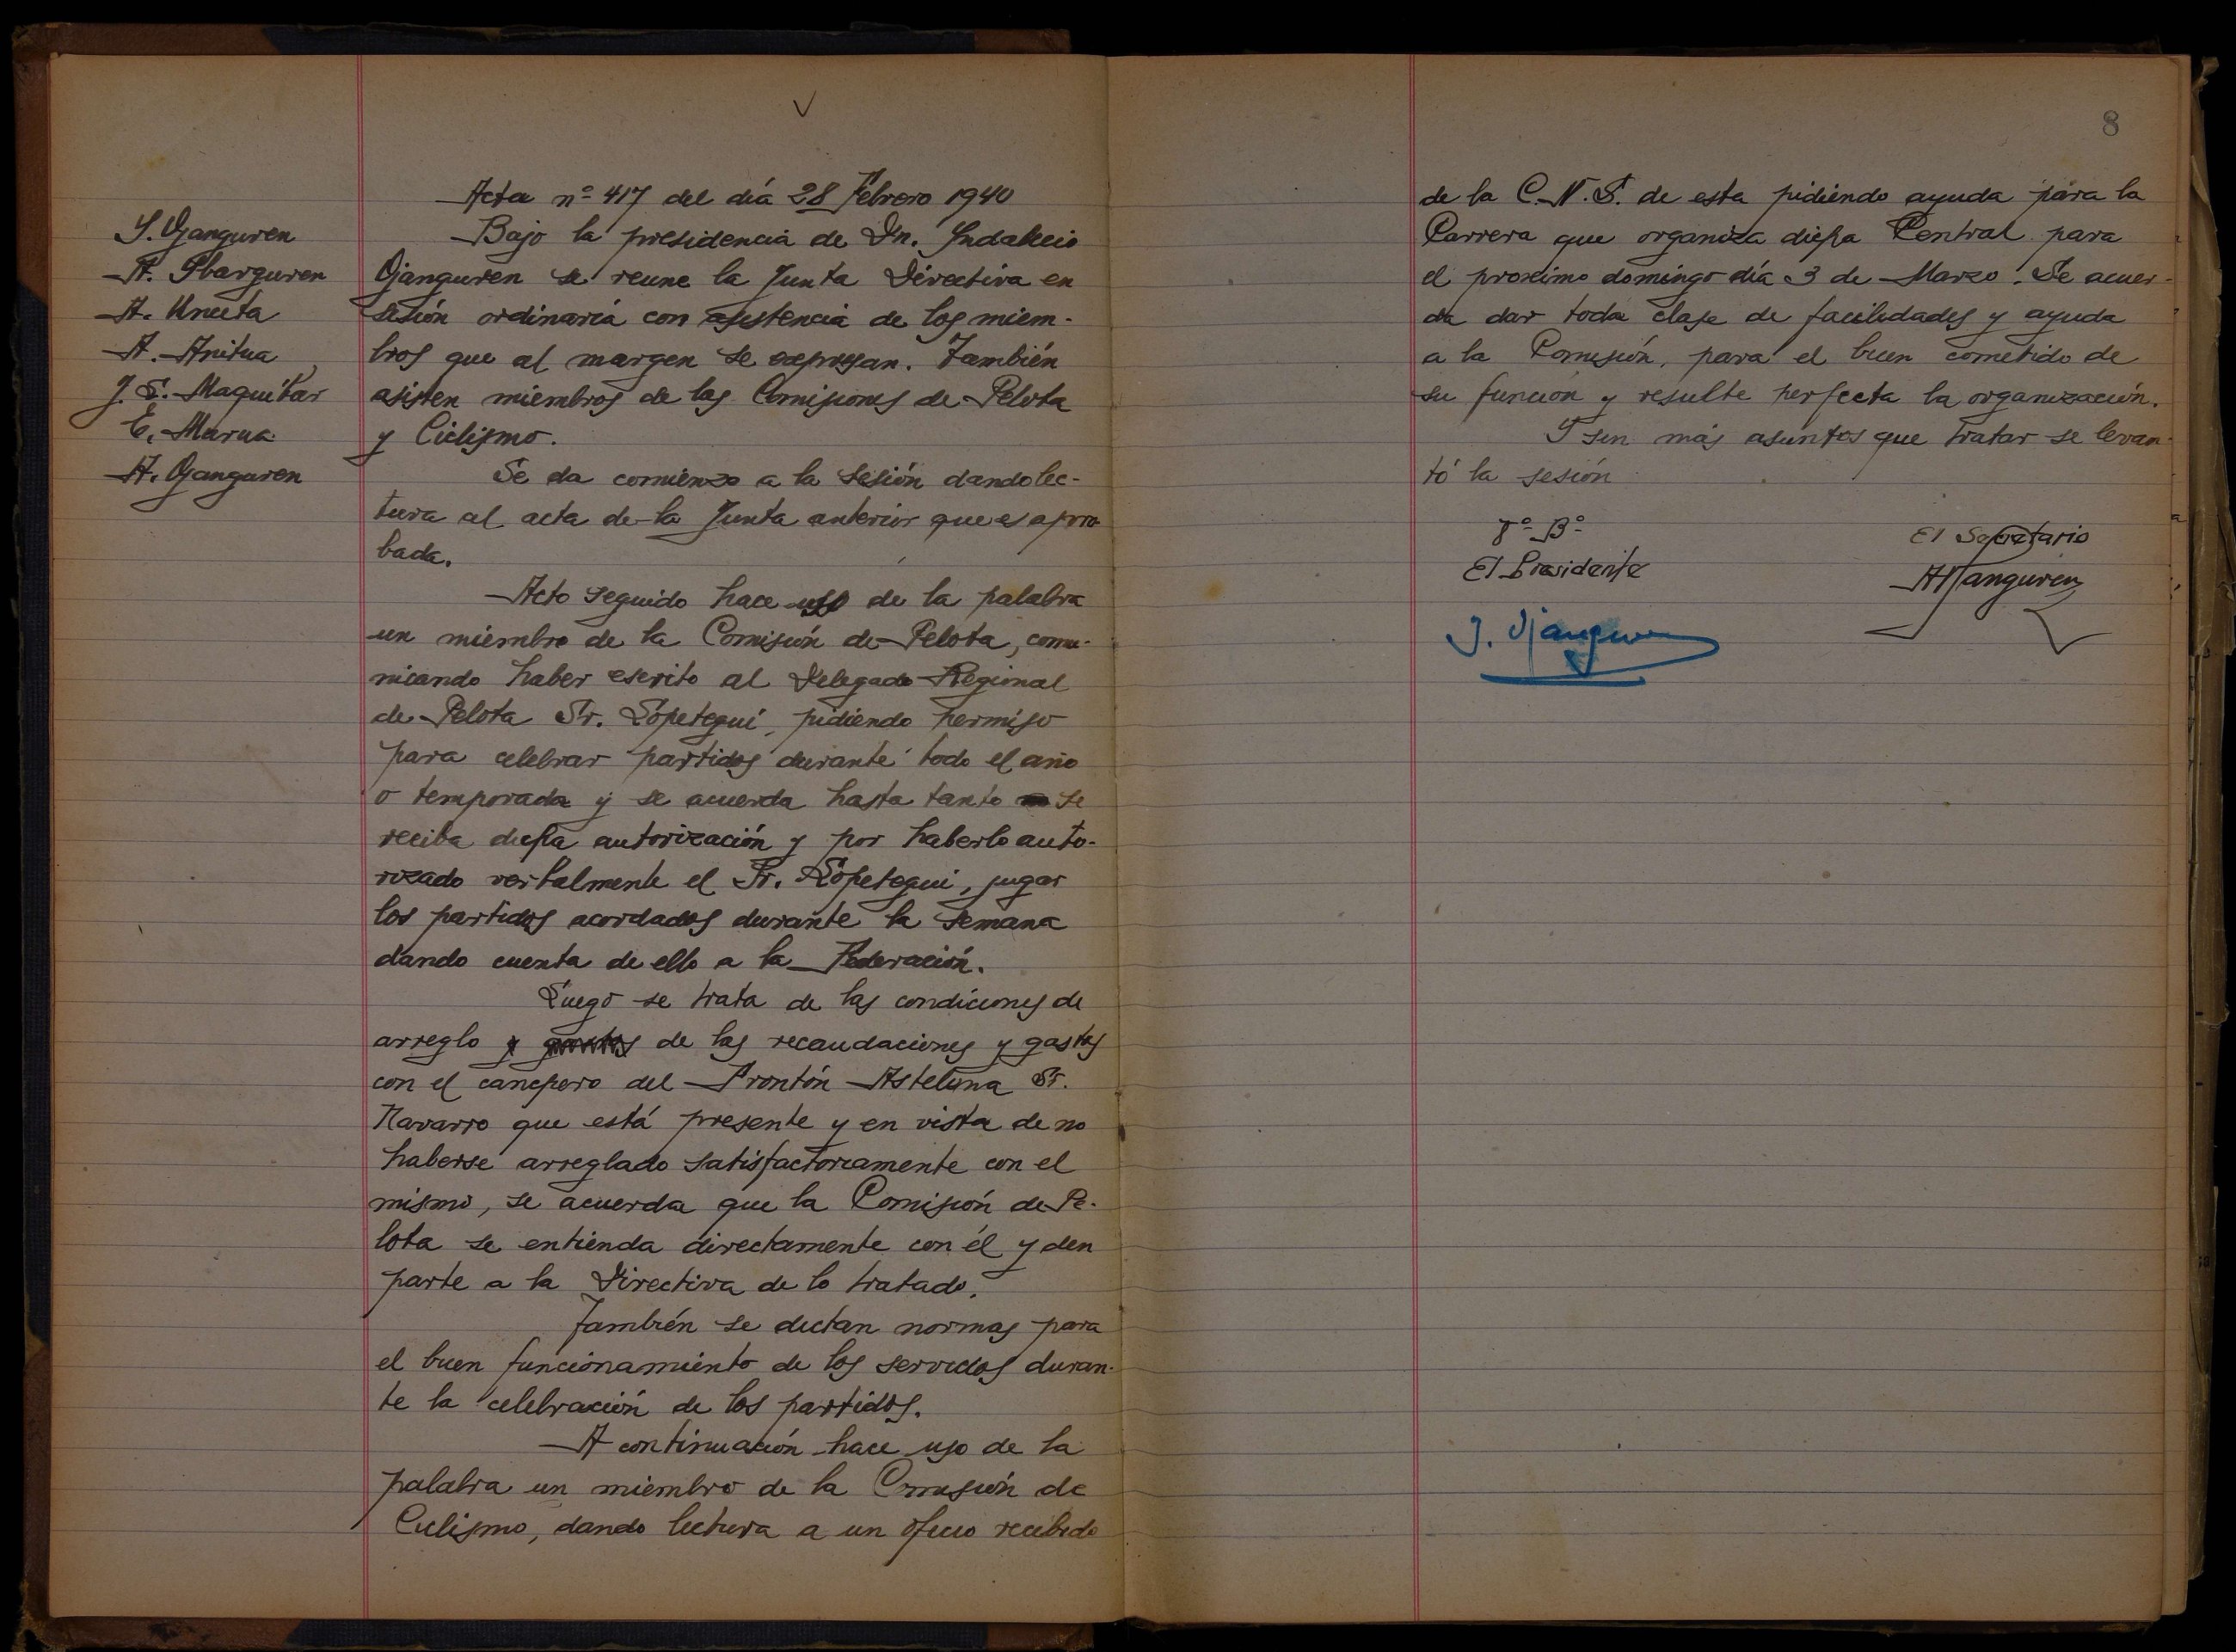 Acta nº 417 del día 28 Febrero 1940
I. Ojanguren
A. Ibarguren
A. Unceta
A. Anitua
J. S. Maquibar
E. Marua
A. Ojanguren
Bajo la presidencia de Dn. Indalecio
Ojanguren se reune la Junta Directiva en
sesión ordinaria con asistencia de los miem-
bros que al margen se expresan. También
asisten miembros de las Comisiones de Pelota
y Ciclismo.
Se da comienzo a la sesión dando lec-
tura al acta de la Junta anterior que es apro
bada.
Acto seguido hace uso de la palabra
un miembro de la Comisión de Pelota, comu-
nicando haber escrito al Delegado Regional
de Pelota Sr. Lopetegui, pidiendo permiso
para celebrar partidos durante todo el año
o temporada y se acuerda hasta tanto se
reciba dicha autorización y por haberlo auto-
rizado verbalmente el Sr. Lopetegui, jugar
los partidos acordados durante la semana
dando cuenta de ello a la Federación.
Luego se trata de las condiciones de
arreglo y gastos de las recaudaciones y gastos
con el canchero del Frontón Astelena Sr.
Navarro que está presente y en vista de no
haberse arreglado satisfactoriamente con el
mismo, se acuerda que la Comisión de Pe-
lota se entienda directamente con él y den
parte a la Directiva de lo tratado.
También se dictan normas para
el buen funcionamiento de los servicios duran-
te la celebración de los partidos.
A continuación hace uso de la
palabra un miembro de la Comisión de
Ciclismo, dando lectura a un oficio recibido
8
de la C.N.S. de esta pidiendo ayuda para la
Carrera que organiza dicha Central para
el proximo domingo día 3 de Marzo. Se acuer-
da dar toda clase de facilidades y ayuda
a la Comisión, para el buen cometido de
su función y resulte perfecta la organización.
Y sin más asuntos que tratar se levan-
tó la sesión
Vº Bº
El Presidente
I. Ojanguren
El Secretario
A. Ojanguren